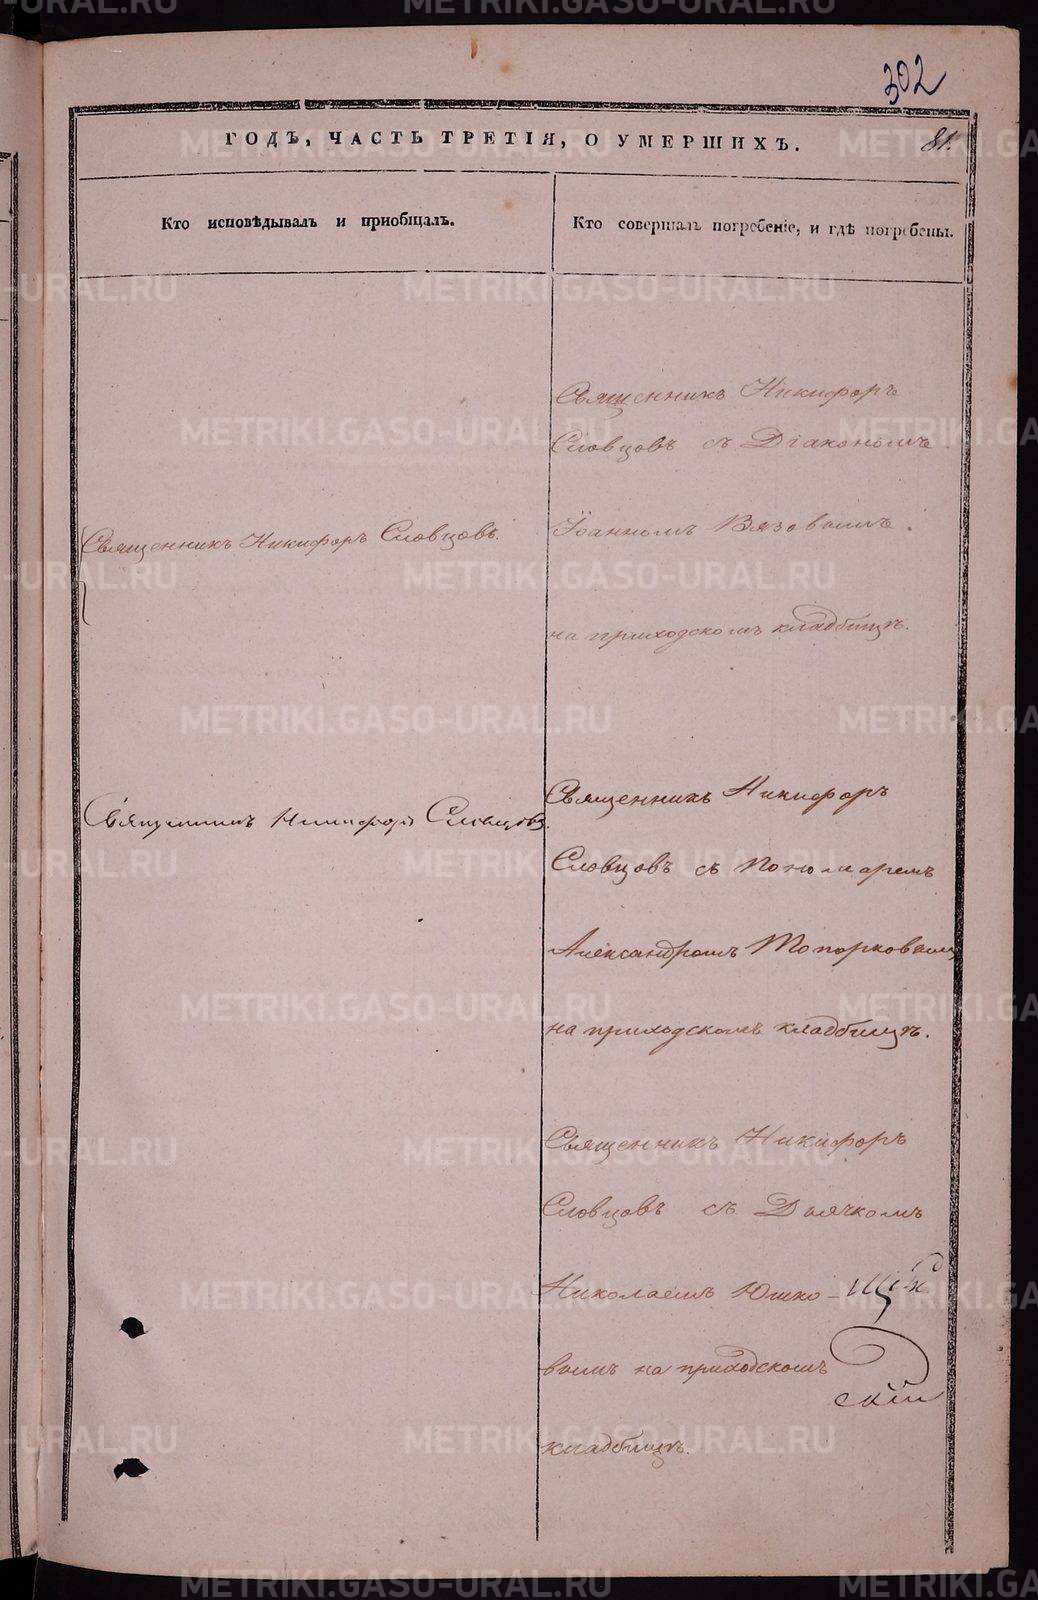 302
ГОДЪ, ЧАСТЬ ТРЕТІЯ, О УМЕРШИХЪ.
81.
Кто исповѣдывалъ и приобщалъ.
Кто совершалъ погребеніе, и гдѣ погребены.
Священникъ Никифоръ Словцовъ.
Священникъ Никифоръ Словцовъ.
Священникъ Никифоръ
Словцовъ съ Діакономъ
Іоанномъ Вязовымъ.
на приходскомъ кладбищѣ.
Священникъ Никифоръ
Словцовъ съ Пономаремъ
Александромъ Топорковымъ
на приходскомъ кладбищѣ.
Священникъ Никифоръ
Словцовъ съ Дьячкомъ
Николаемъ Юшко-
вымъ на приходскомъ
кладбищѣ.
скій
METRIKI.GASO-URAL.RU